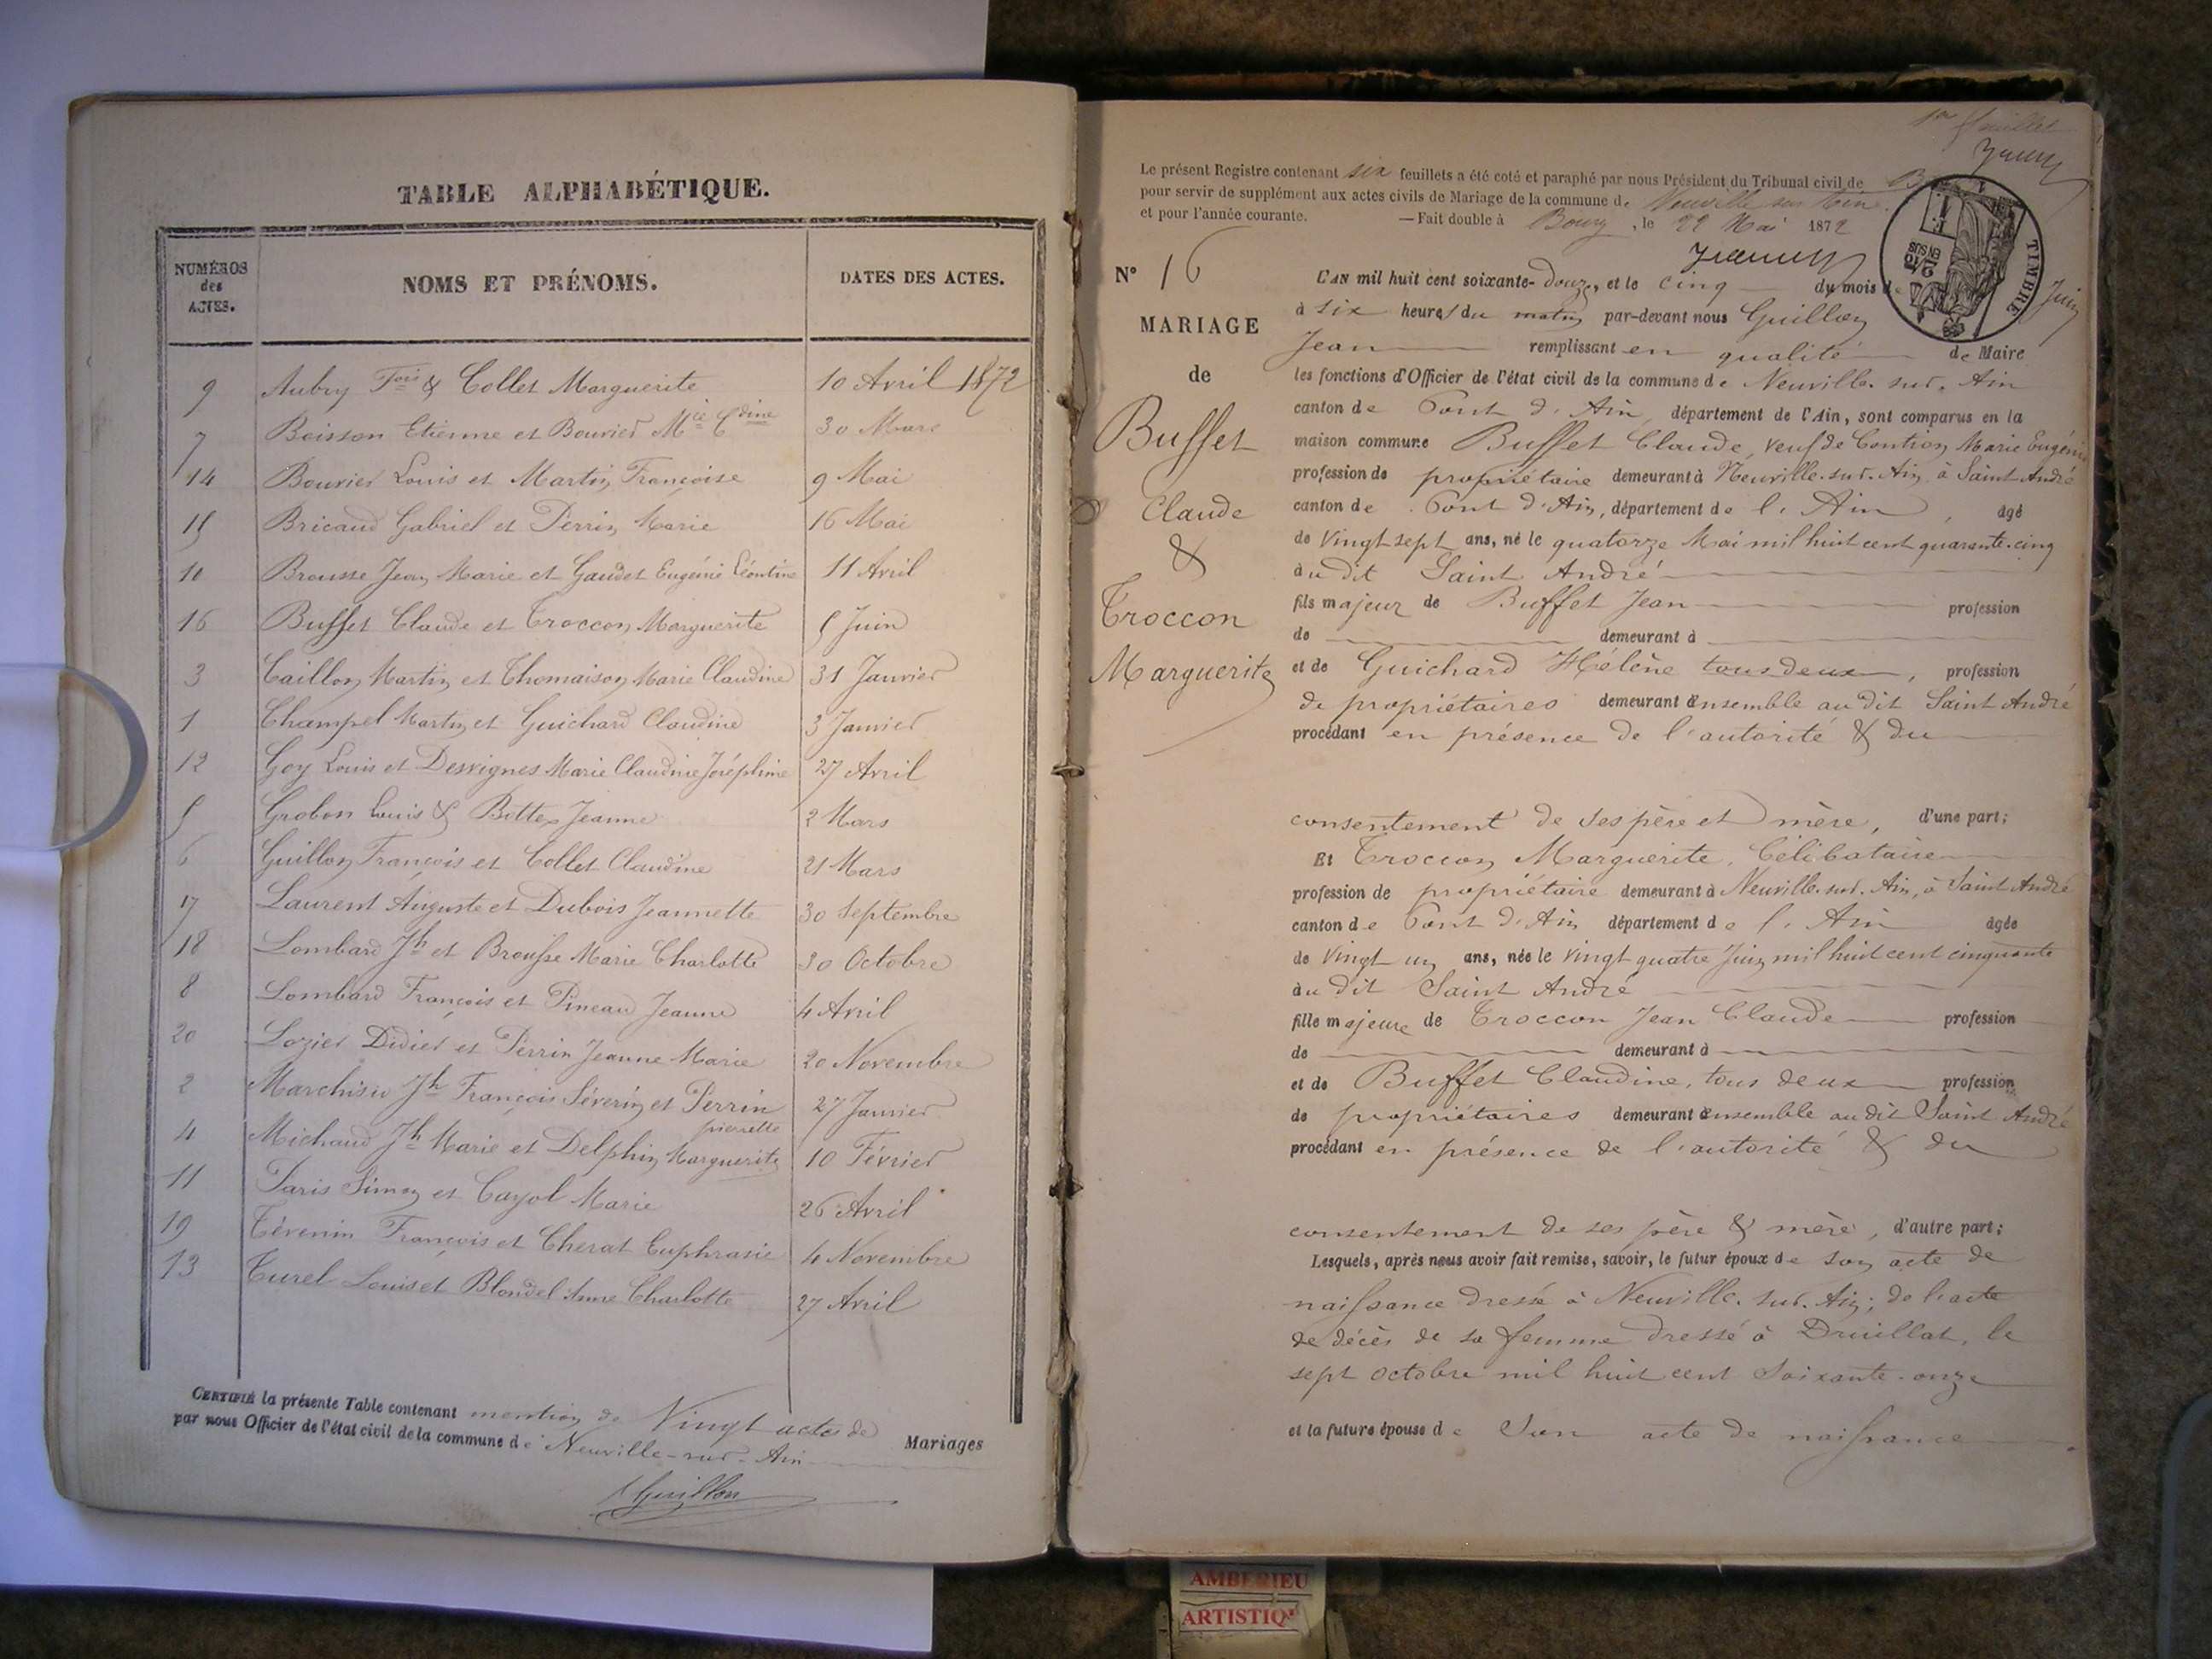 TABLE ALPHABÉTIQUE.
NUMÉROS des ACTES. NOMS ET PRÉNOMS. DATES DES ACTES.
9 Aubry Fois & Collet Marguerite 10 Avril 1872
7 Boisson Etienne et Bouvier Mie Cdine 30 Mars
14 Bouvier Louis et Martin Françoise 9 Mai
15 Bricaud Gabriel et Perrin Marie 16 Mai
10 Brousse Jean Marie et Gaudet Eugénie Léontine 11 Avril
16 Buffet Claude et Troccon Marguerite 5 Juin
3 Caillon Martin et Thomaison Marie Claudine 31 Janvier
1 Champel Martin et Guichard Claudine 3 Janvier
12 Goy Louis et Desvignes Marie Claudine Joséphine 27 Avril
5 Grobon Louis & Bottex Jeanne 2 Mars
6 Guillon François et Collet Claudine 21 Mars
17 Laurent Auguste et Dubois Jeannette 30 Septembre
18 Lombard Jh et Brousse Marie Charlotte 30 Octobre
8 Lombard François et Pineau Jeanne 4 Avril
20 Lozier Didier et Perrin Jeanne Marie 20 Novembre
2 Marchisio Jh François Séverin et Perrin pierrette 27 Janvier
4 Michaud Jh Marie et Delphin Marguerite 10 Février
11 Paris Simon et Cayol Marie 26 Avril
19 Tévenin François et Cherat Euphrasie 4 Novembre
13 Turel Louis et Blondel Anne Charlotte 27 Avril
CERTIFIÉ la présente Table contenant mention de Vingt actes de Mariages
par nous Officier de l'état civil de la commune de Neuville-sur-Ain
Guillon
1er feuillet
Le présent Registre contenant six feuillets a été coté et paraphé par nous Président du Tribunal civil de
pour servir de supplément aux actes civils de Mariage de la commune de Neuville sur Ain
et pour l'année courante. — Fait double à Bourg, le 22 Mai 1872
TIMBRE
N° 16
MARIAGE
de
Buffet
Claude
&
Troccon
Marguerite
L'AN mil huit cent soixante-douze, et le cinq du mois de Juin
à six heures du matin par-devant nous Guillon
Jean remplissant en qualité de Maire
les fonctions d'Officier de l'état civil de la commune de Neuville-sur-Ain
canton de Pont d'Ain, département de l'Ain, sont comparus en la
maison commune Buffet Claude, veuf de Contion Marie Eugénie
profession de propriétaire demeurant à Neuville-sur-Ain, à Saint André
canton de Pont d'Ain, département de l'Ain, âgé
de Vingt sept ans, né le quatorze Mai mil huit cent quarante-cinq
au dit Saint André
fils majeur de Buffet Jean profession
de demeurant à
et de Guichard Hélène tous deux, profession
de propriétaires demeurant ensemble au dit Saint André
procédant en présence de l'autorité & du
consentement de ses père et mère, d'une part;
Et Troccon Marguerite, Célibataire
profession de propriétaire demeurant à Neuville-sur-Ain, à Saint André
canton de Pont d'Ain département de l'Ain âgée
de Vingt un ans, née le vingt quatre Juin mil huit cent cinquante
au dit Saint André
fille majeure de Troccon Jean Claude profession
de demeurant à
et de Buffet Claudine, tous deux profession
de propriétaires demeurant ensemble au dit Saint André
procédant en présence de l'autorité & du
consentement de ses père & mère, d'autre part;
Lesquels, après nous avoir fait remise, savoir, le futur époux de son acte de
naissance dressé à Neuville-sur-Ain; de l'acte
de décès de sa femme dressé à Druillat, le
sept octobre mil huit cent soixante-onze
et la future épouse de Son acte de naissance
AMBERIEU
ARTISTIQ